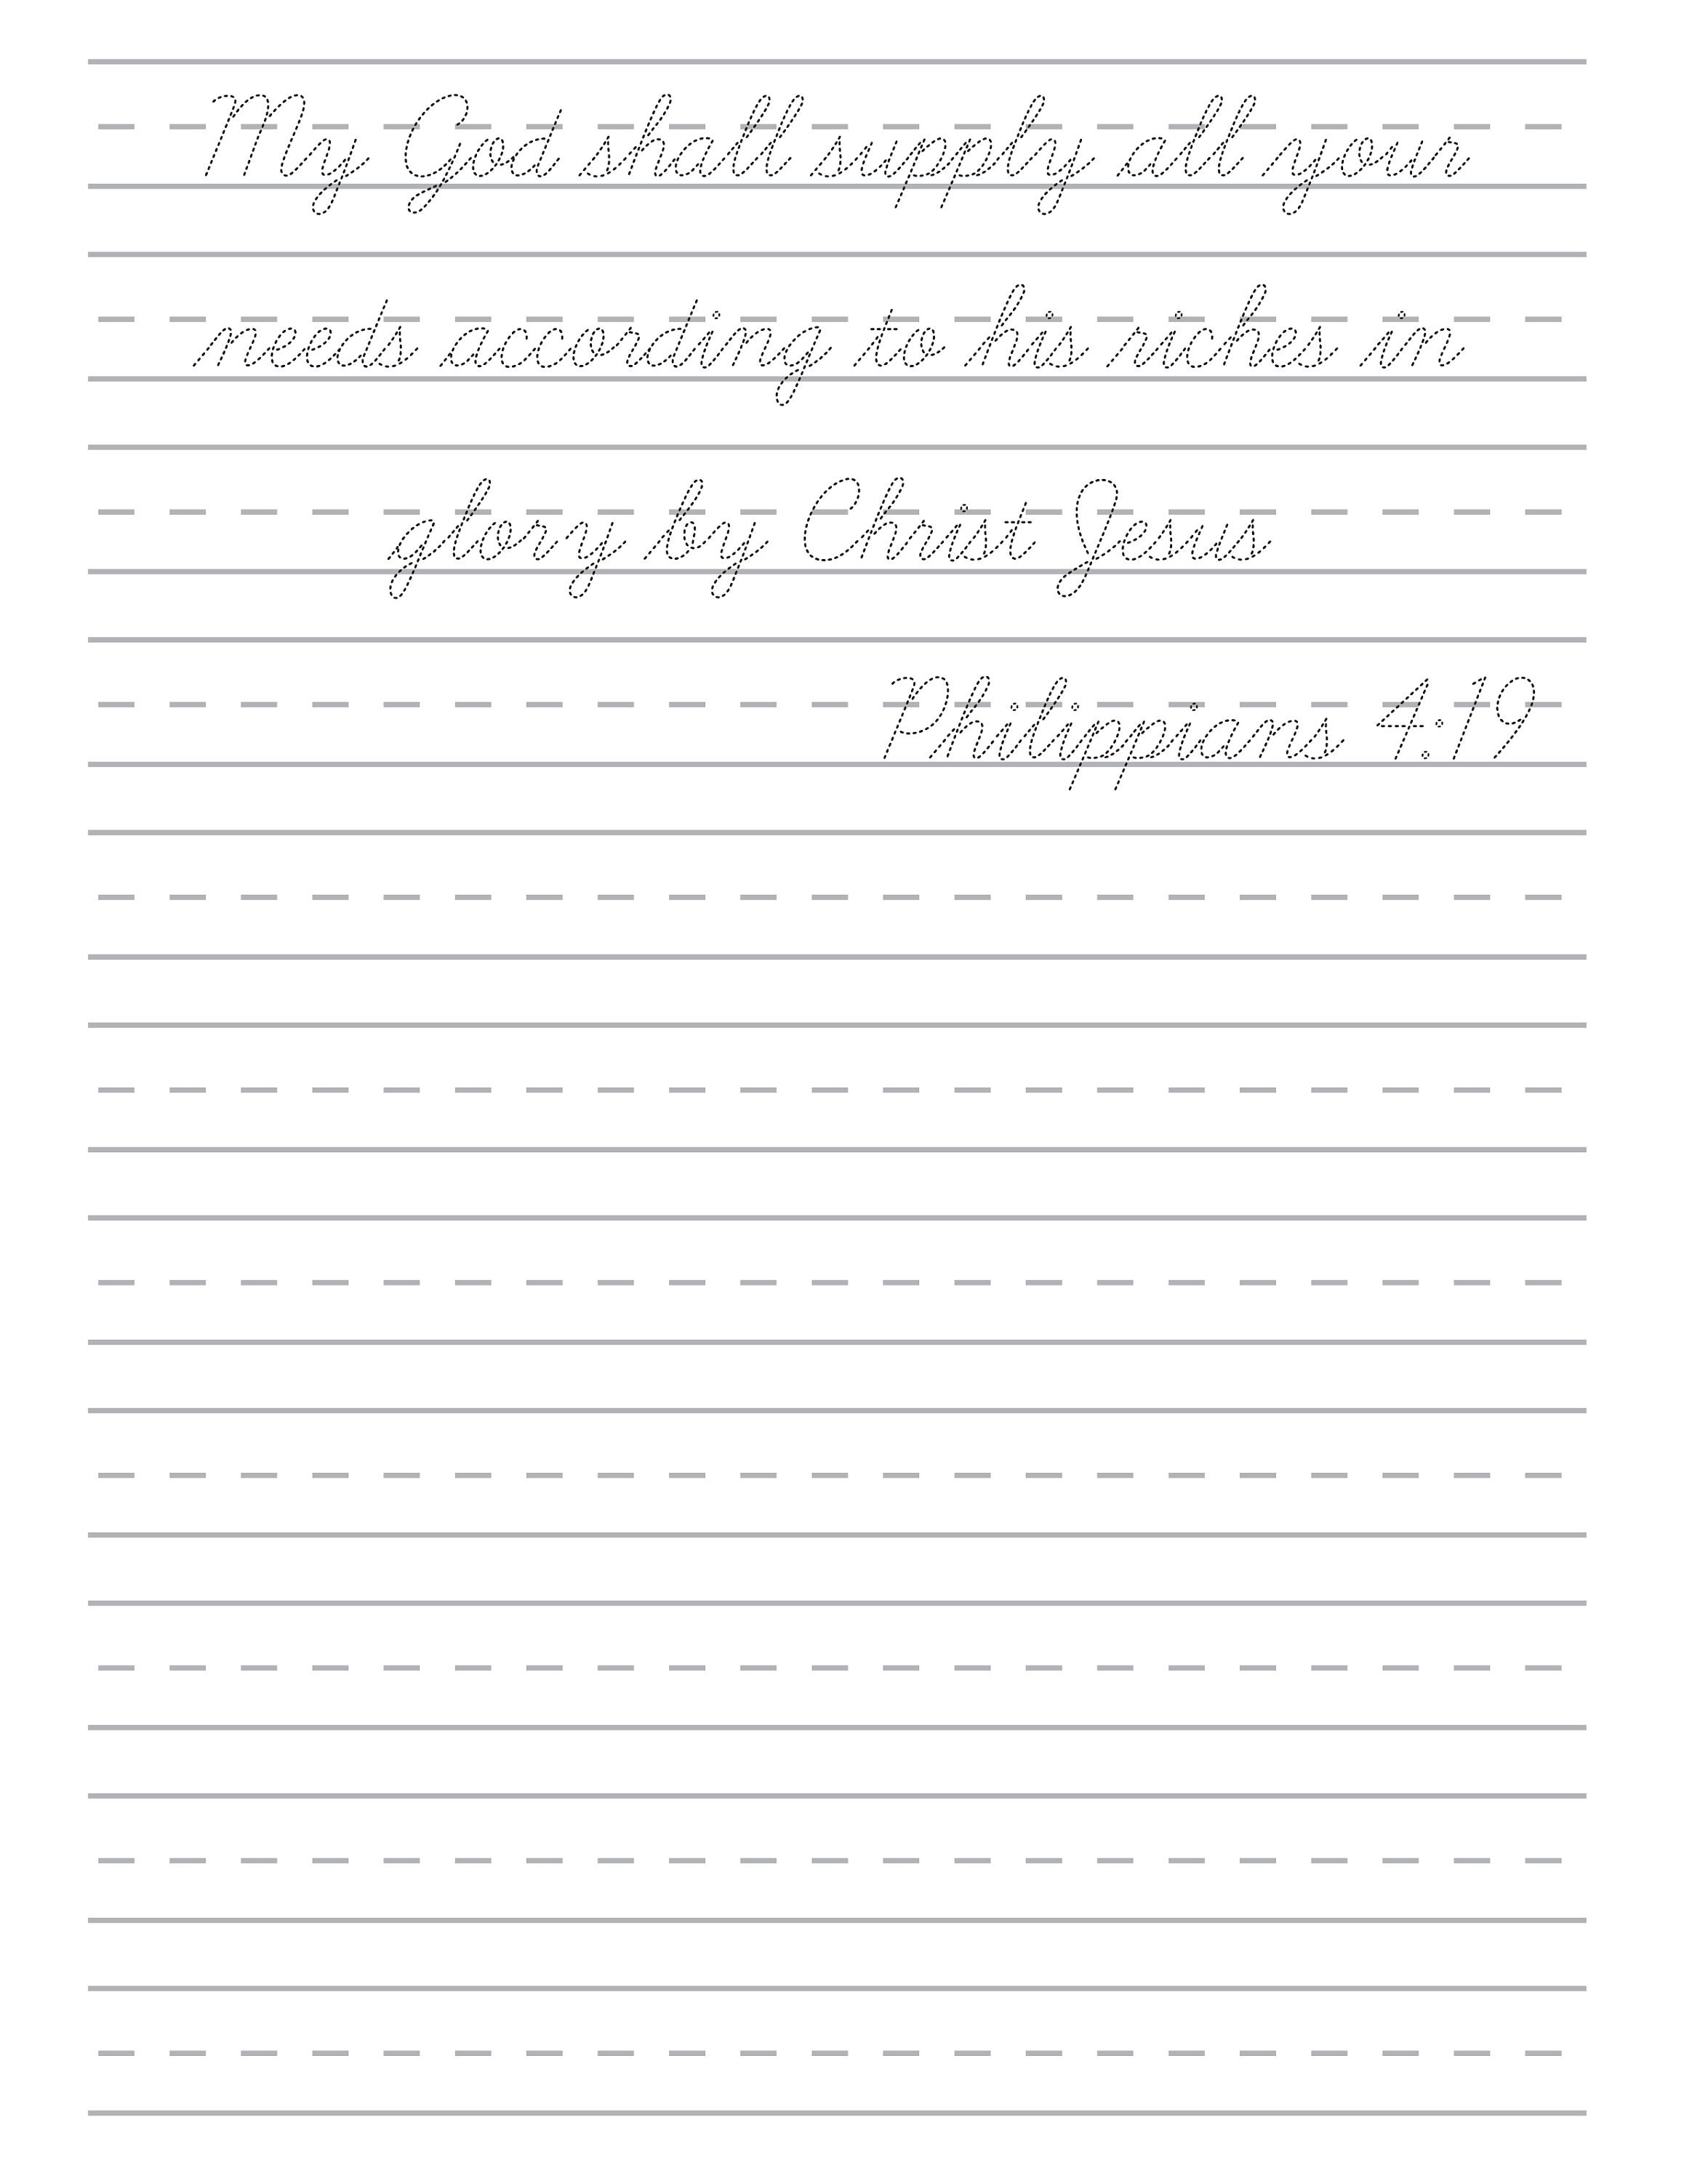 My God shall supply all your
needs according to his riches in
glory by Christ Jesus
Philippians 4:19